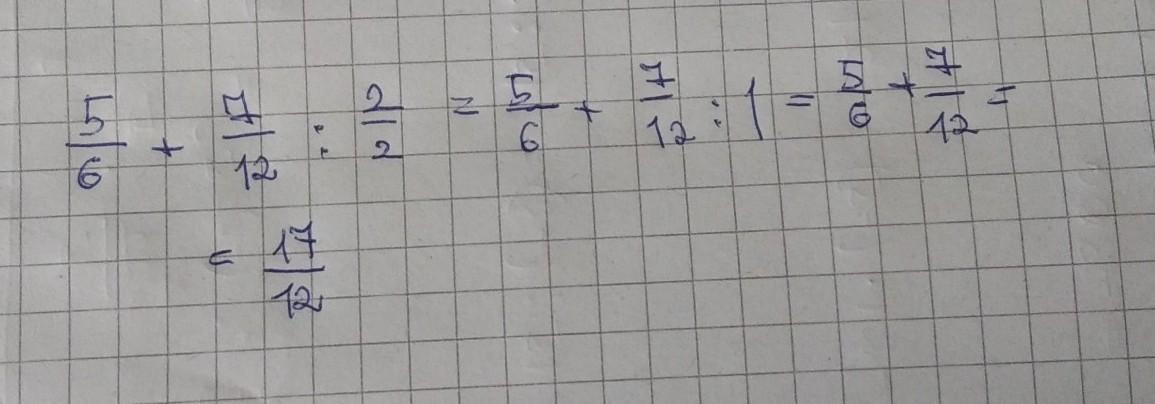 5/6 + 7/12 : 2/2 = 5/6 + 7/12 : 1 = 5/6 + 7/12 =
= 17/12